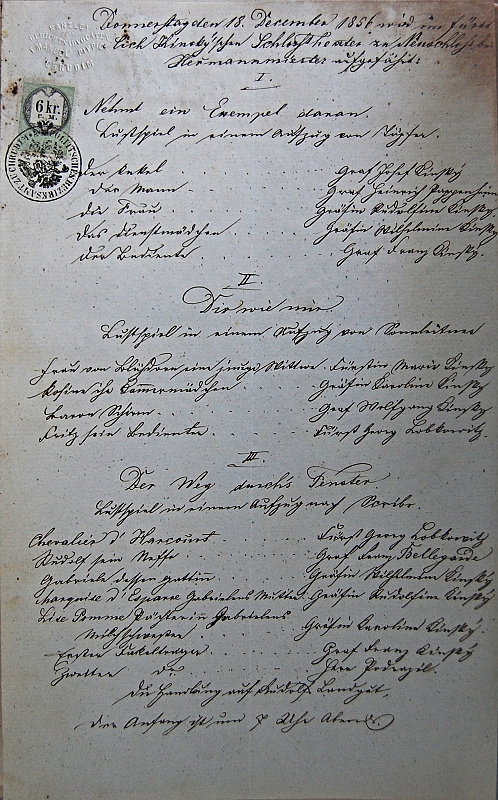 Donnerstag den 18. December 1856 wird im fürst-
lich Kinsky'schen Schloßtheater zu Neuschloß bei
Hermannmiestec aufgeführt:
I
Nehmt ein Exempel daran.
Lustspiel in einem Aufzug von Töpfer.
6 kr.
C. M.
Der Onkel Graf Josef Kinsky
Der Mann Graf Heinrich Pappenheim
die Frau Gräfin Rudolfine Kinsky
das Dienstmädchen Gräfin Wilhelmine Kinsky
der Bediente Graf Franz Kinsky.
II
Die wie mir.
Lustspiel in einem Aufzug von Sonnleitner
Frau von eine junge Wittwe. Fürstin Marie Kinsky
Rosine ihr Kammermädchen Gräfin Karoline Kinsky
Baron Graf Wolfgang Kinsky
Fritz sein Bedienter Fürst Georg Lobkowitz.
III
Der Weg durch's Fenster
Lustspiel in einem Aufzug nach Scribe.
Chevalier d'Harcourt Fürst Georg Lobkowitz
Rudolf sein Neffe Graf Franz Bellegarde
Gabriele dessen Gattin Gräfin Wilhelmine Kinsky
Marquise d'Esparre Gabrielens Mutter Gräfin Rudolfine Kinsky
Lise Pomme Pächterin Gabrielens
Milchschwester Gräfin Karoline Kinsky.
Erster Graf Franz Kinsky
Zweiter Herr
Die Handlung auf Rudolfs Landgut.
Der Anfang ist um 7 Uhr Abends.